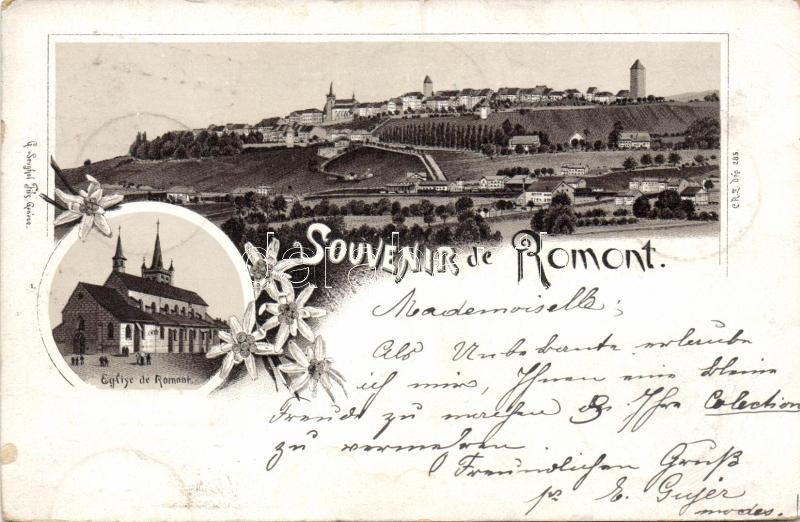 SOUVENIR de Romont.
Eglise de Romont.
C.P.Z. Dép. 285.
Mademoiselle;
Als Unbekannte erlaube
ich mir, Ihnen eine kleine
Freude zu machen & Ihre Colection
zu vermehren.
Freundlichen Gruß
E. Gujer
modes.
darabanth